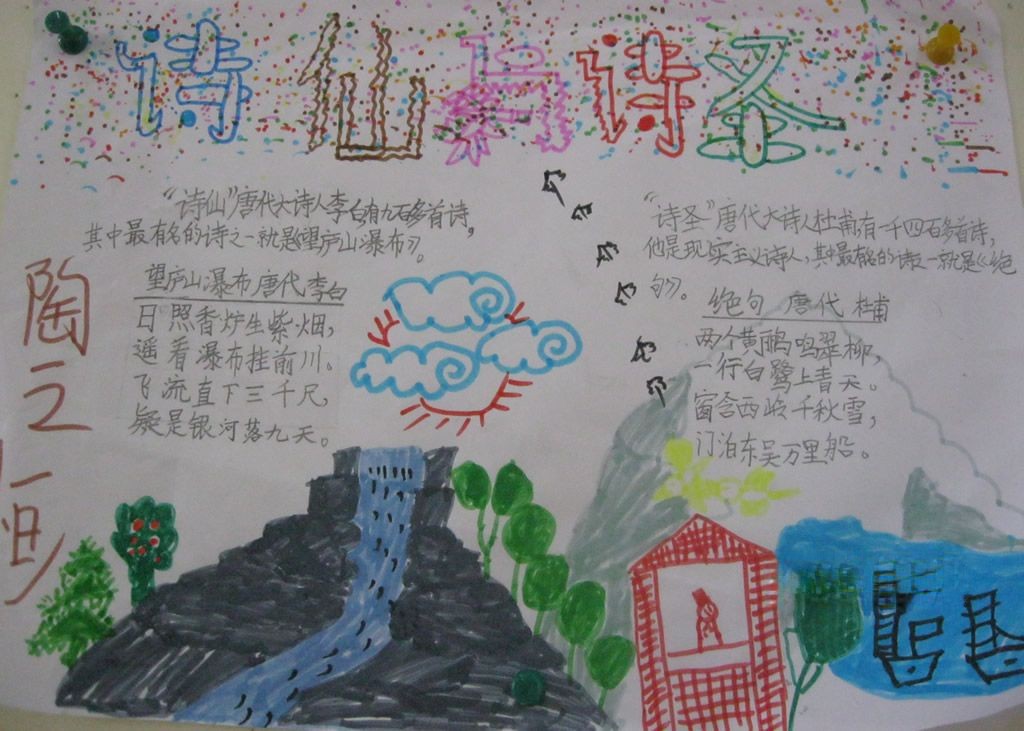 诗仙与诗圣
“诗仙”唐代大诗人李白有九百多首诗,
其中最有名的诗之一就是《望庐山瀑布》。
望庐山瀑布 唐代 李白
日照香炉生紫烟,
遥看瀑布挂前川。
飞流直下三千尺,
疑是银河落九天。
“诗圣”唐代大诗人杜甫有一千四百多首诗,
他是现实主义诗人,其中最有名的诗之一就是《绝
句》。
绝句 唐代 杜甫
两个黄鹂鸣翠柳,
一行白鹭上青天。
窗含西岭千秋雪,
门泊东吴万里船。
陶之恒